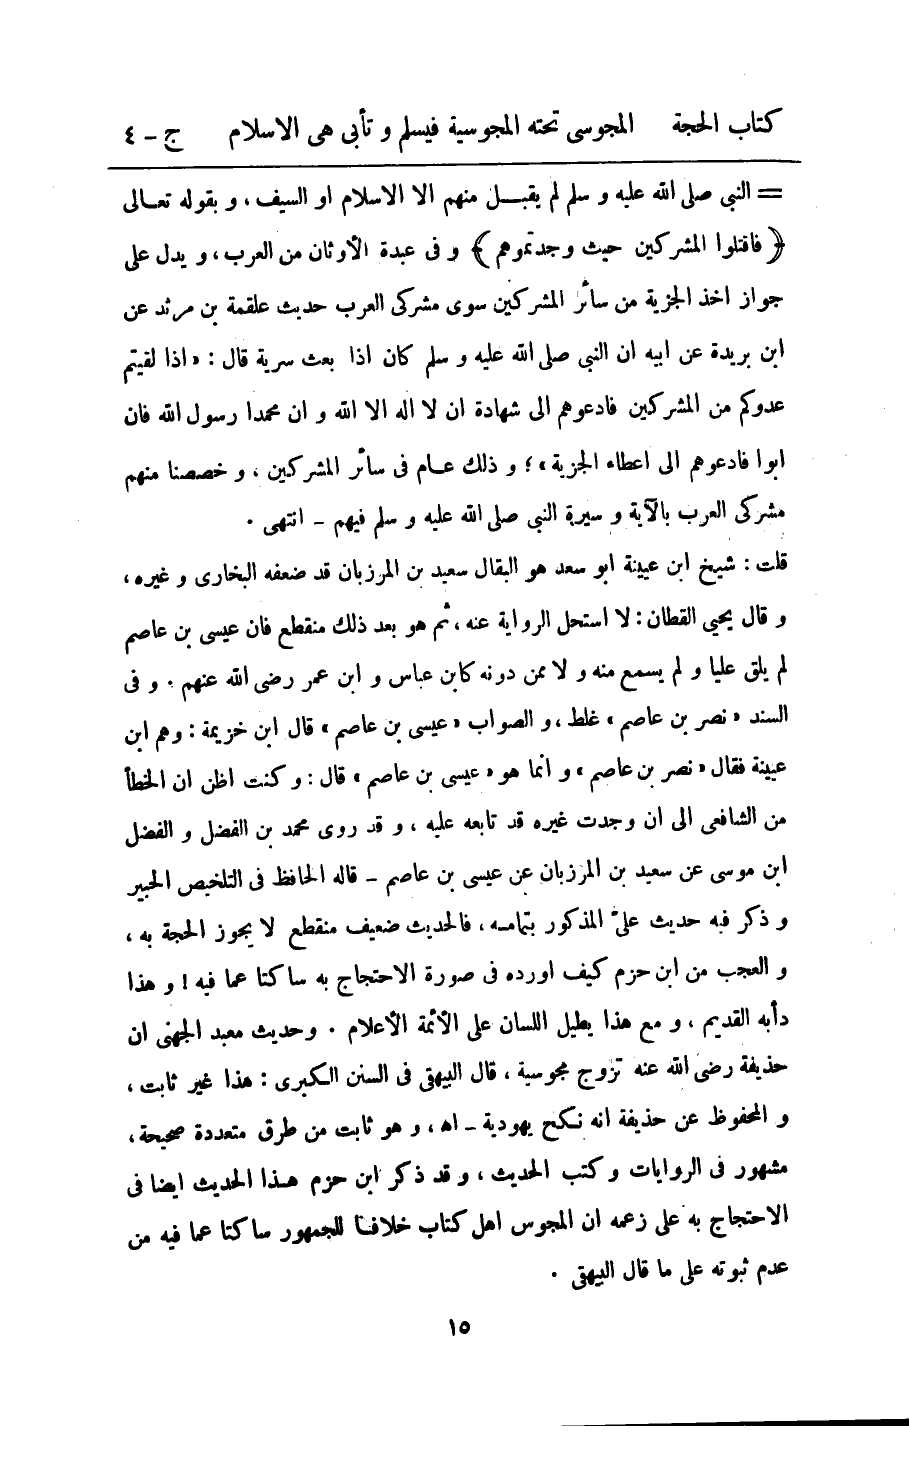 كتاب الحجة المجوسى تحته المجوسية فيسلم و تأبى هى الاسلام ج – ٤
= النبى صلى الله عليه و سلم لم يقبـــل منهم الا الاسلام او السيف، و بقوله تعـالى
﴿ فاقتلوا المشركين حيث وجدتموهم ﴾ و فى عبدة الأوثان من العرب، و يدل على
جواز اخذ الجزية من سائر المشركين سوى مشركى العرب حديث علقمة بن مرثد عن
ابن بريدة عن ابيه ان النبى صلى الله عليه و سلم كان اذا بعث سرية قال : « اذا لقيتم
عدوكم من المشركين فادعوهم الى شهادة ان لا اله الا الله و ان محمدا رسول الله فان
ابوا فادعوهم الى اعطاء الجزية » ؛ و ذلك عـام فى سائر المشركين ، و خصصنا منهم
مشركى العرب بالآية و سيرة النبى صلى الله عليه و سلم فيهم – انتهى .
قلت : شيخ ابن عيينة ابو سعد هو البقال سعيد بن المرزبان قد ضعفه البخارى و غيره ،
و قال يحيى القطان : لا استحل الرواية عنه ، ثم هو بعد ذلك منقطع فان عيسى بن عاصم
لم يلق عليا و لم يسمع منه و لا ممن دونه كابن عباس و ابن عمر رضى الله عنهم . و فى
السند « نصر بن عاصم » غلط ، و الصواب « عيسى بن عاصم » قال ابن خزيمة : وهم ابن
عيينة فقال « نصر بن عاصم » و انما هو « عيسى بن عاصم » قال : و كنت اظن ان الخطأ
من الشافعى الى ان وجدت غيره قد تابعه عليه ، و قد روى محمد بن الفضل و الفضل
ابن موسى عن سعيد بن المرزبان عن عيسى بن عاصم – قاله الحافظ فى التلخيص الحبير
و ذكر فيه حديث علىّ المذكور بتمامـه ، فالحديث ضعيف منقطع لا يجوز الحجة به ،
و العجب من ابن حزم كيف اورده فى صورة الاحتجاج به ساكتا عما فيه ! و هذا
دأبه القديم ، و مع هذا يطيل اللسان على الأئمة الأعلام . وحديث معبد الجهنى ان
حذيفة رضى الله عنه تزوج مجوسية ، قال البيهقى فى السنن الكبرى : هذا غير ثابت ،
و المحفوظ عن حذيفة انه نكح يهودية – اه ، و هو ثابت من طرق متعددة صحيحة ،
مشهور فى الروايات و كتب الحديث ، و قد ذكر ابن حزم هـذا الحديث ايضا فى
الاحتجاج به على زعمه ان المجوس اهل كتاب خلافـا للجمهور ساكتا عما فيه من
عدم ثبوته على ما قال البيهقى .
١٥